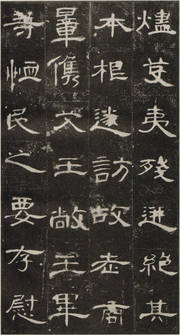 燼芟夷殘迸絕其
本根遂訪故老商
量儁艾王敞王畢
等恤民之要存慰